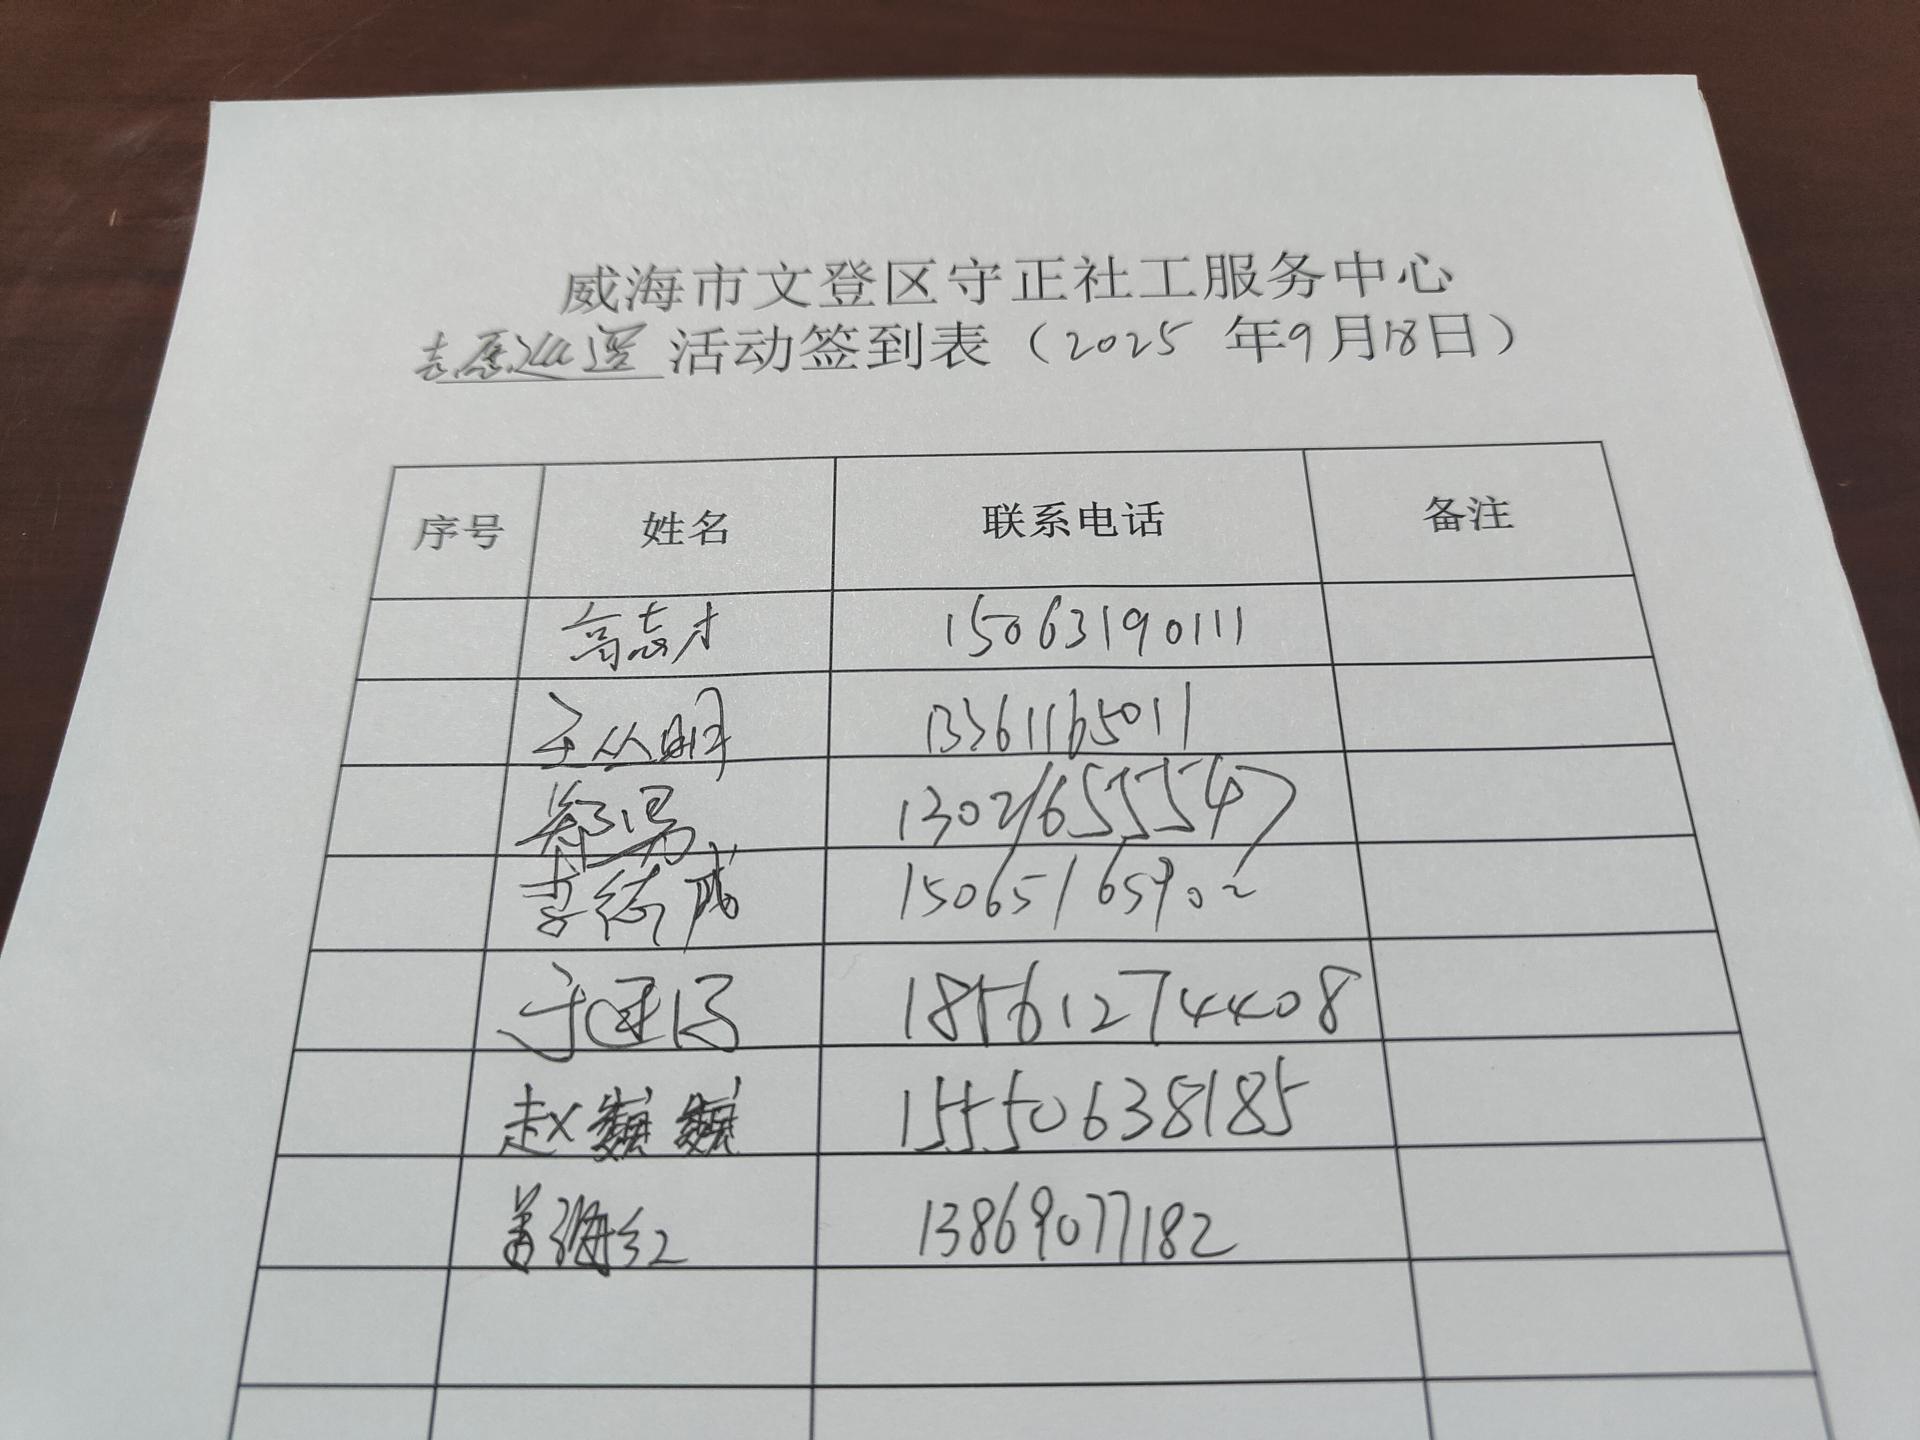 威海市文登区守正社工服务中心
志愿巡逻活动签到表（2025 年9月18日）
序号 姓名 联系电话 备注
高志才 15063190111
王丛明 13361165011
郑易 13021655547
李德成 15065165902
于建 18561274408
赵巍巍 15550638185
海红 13869077182